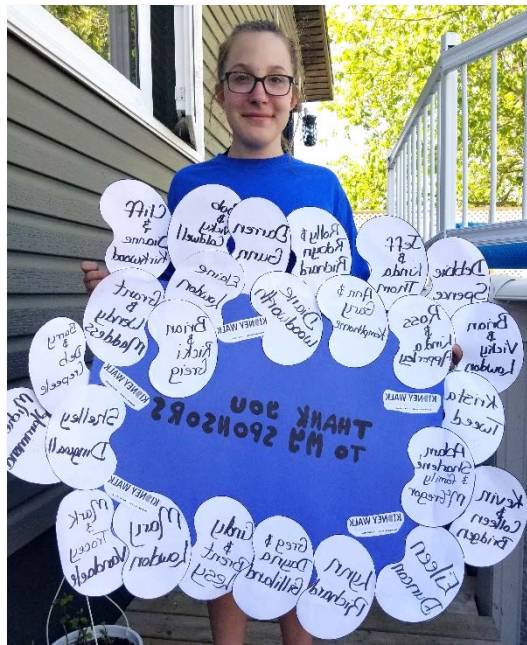 Cliff
&
Dianne
Kirkwood
Bob
&
Vicky
Caldwell
Darren
Gunn
Rolly &
Robyn
Richard
Jeff
&
Linda
Debbie
Spence
Grant
&
Wendy
Maddess
Elaine
Lowdon
Diane
Woodworth
Ann &
Gary
Kempthorne
Ross
&
Linda
Apperley
Brian
&
Vicky
Lowdon
Barry
&
Deb
Brian
&
Ricki
Greig
KIDNEY WALK
KIDNEY WALK
KIDNEY WALK
Krista
Tweed
THANK YOU
TO MY SPONSORS
Shelley
Adam,
Sharlene
& family
McGregor
Kevin
&
Colleen
Bridgen
KIDNEY WALK
KIDNEY WALK
Mark
&
Tracey
Vandaele
Mary
Lowdon
Cindy
&
Brent
Greg &
Dayna
Gilliland
Lynn
Richard
Eileen
Duncan